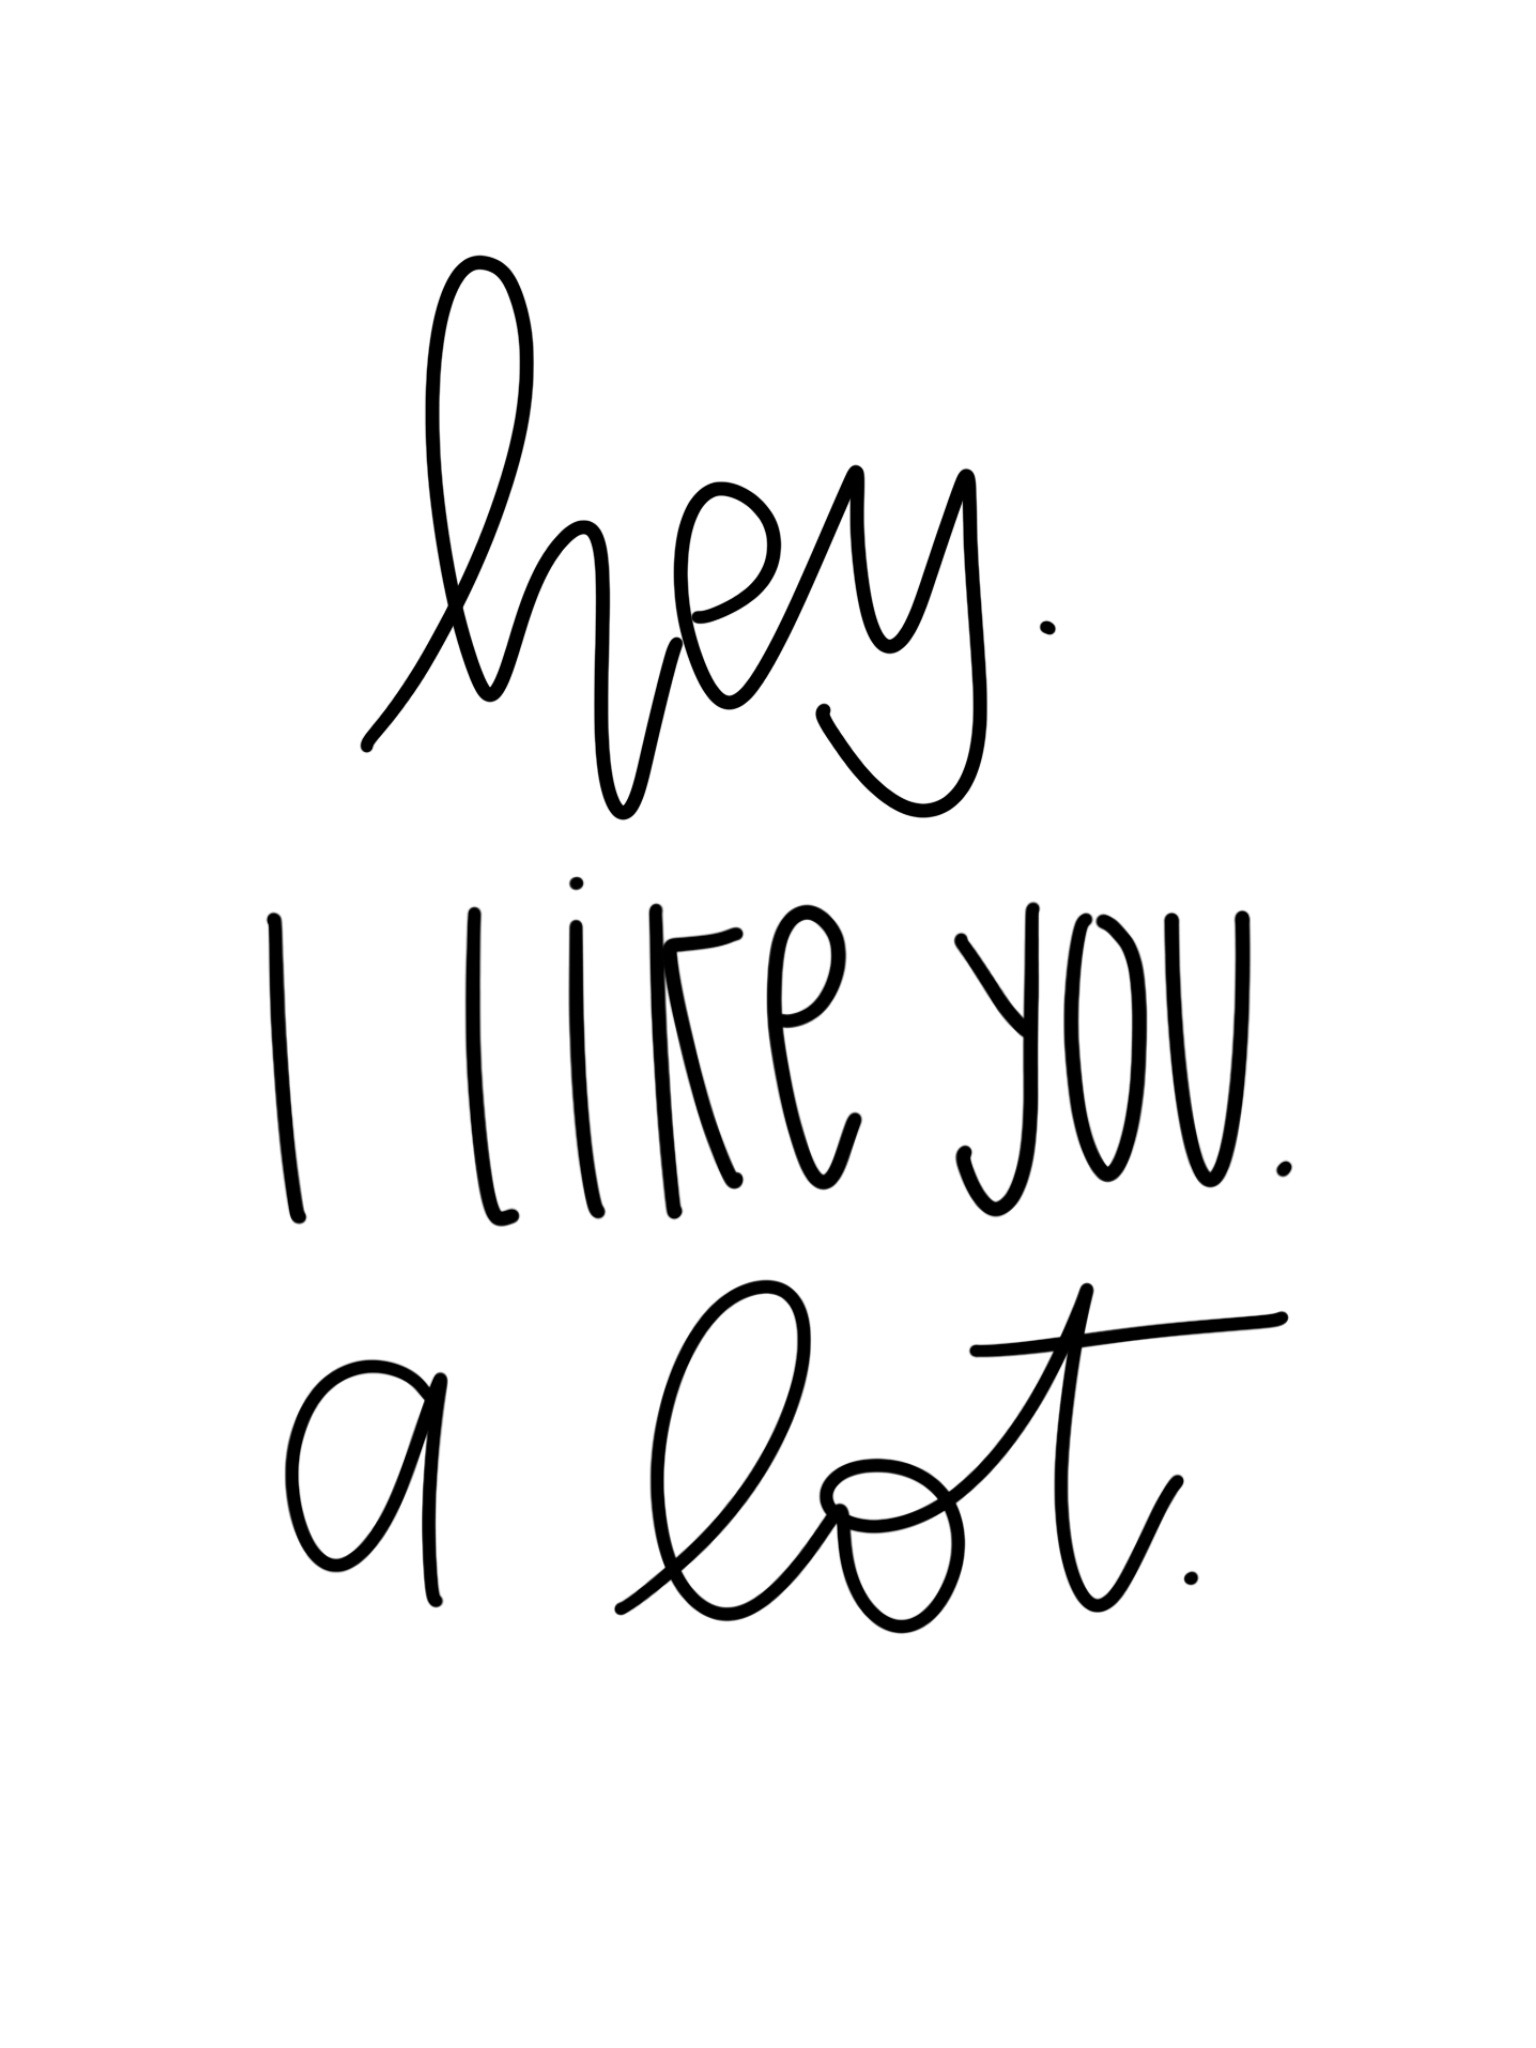 hey.
I like you.
a lot.